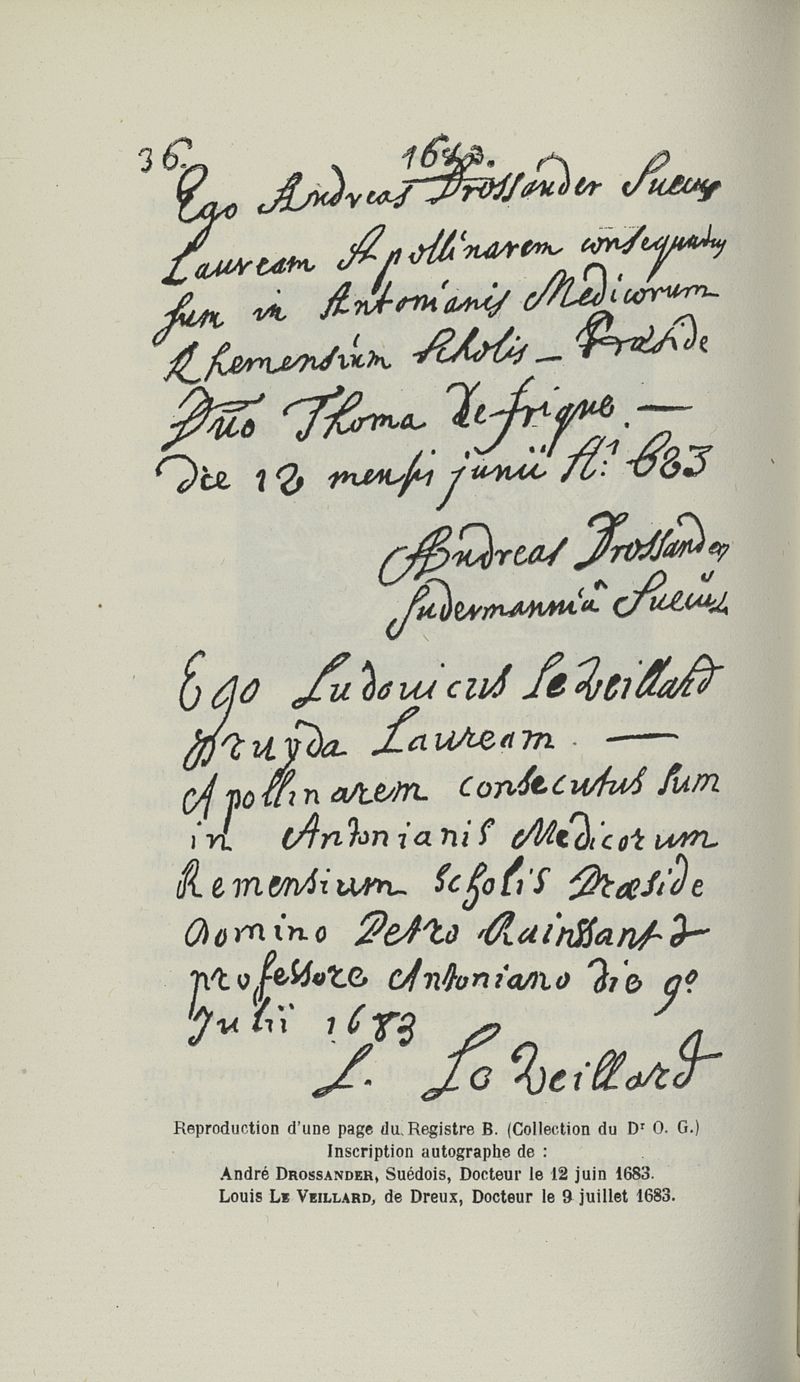 36. 1683.
Ego Andreas Drossander Suecus
Lauream Apollinarem consequutus
sum in Antonianis Medicorum
Rhemensium Scholis – Præside
Dño Thoma Defrique. —
Die 12 mensis junii A.º 1683
Andreas Drossander
Sudermanniâ Suecus
Ego Ludovicus Le Veillard
Druyda Lauream . —
Apollinarem consecutus sum
in Antonianis Medicorum
Remensium scholis Præside
Domino Petro Rainssant d
professore Antoniano die 9º
Julii 1683
L. Le Veillard
Reproduction d'une page du Registre B. (Collection du Dr O. G.)
Inscription autographe de :
André Drossander, Suédois, Docteur le 12 juin 1683.
Louis Le Veillard, de Dreux, Docteur le 9 juillet 1683.